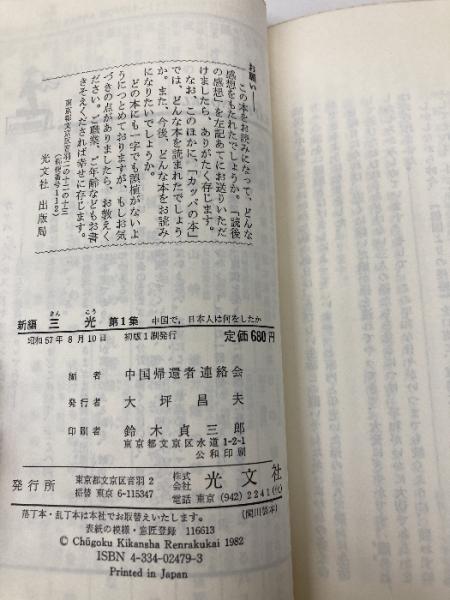 お願い——
この本をお読みになって、どんな
感想をもたれたでしょうか。「読後
の感想」を左記あてにお送りいただ
けましたら、ありがたく存じます。
なお、このほかに、「カッパの本」
では、どんな本を読まれたでしょう
か。また、今後、どんな本をお読み
になりたいでしょうか。
どの本にも一字でも誤植がないよ
うにつとめておりますが、もしお気
づきの点がありましたら、お教えく
ださい。ご職業、ご年齢などもお書
きそえくだされば幸せに存じます。
東京都文京区音羽二の十二の十三
(郵便番号112)
光文社 出版局
さん こう
新編 三光 第1集 中国で、日本人は何をしたか
昭和57年8月10日 初版1刷発行 定価680円
編者 中国帰還者連絡会
発行者 大坪昌夫
印刷者 鈴木貞三郎
東京都文京区水道1-2-1
公和印刷
発行所 東京都文京区音羽2 株式会社 光文社
振替 東京 6-115347 電話 東京 (942) 2241(代)
落丁本・乱丁本は本社でお取替えいたします。 (関川製本)
表紙の模様・意匠登録 116613
© Chūgoku Kikansha Renrakukai 1982
ISBN 4-334-02479-3
Printed in Japan